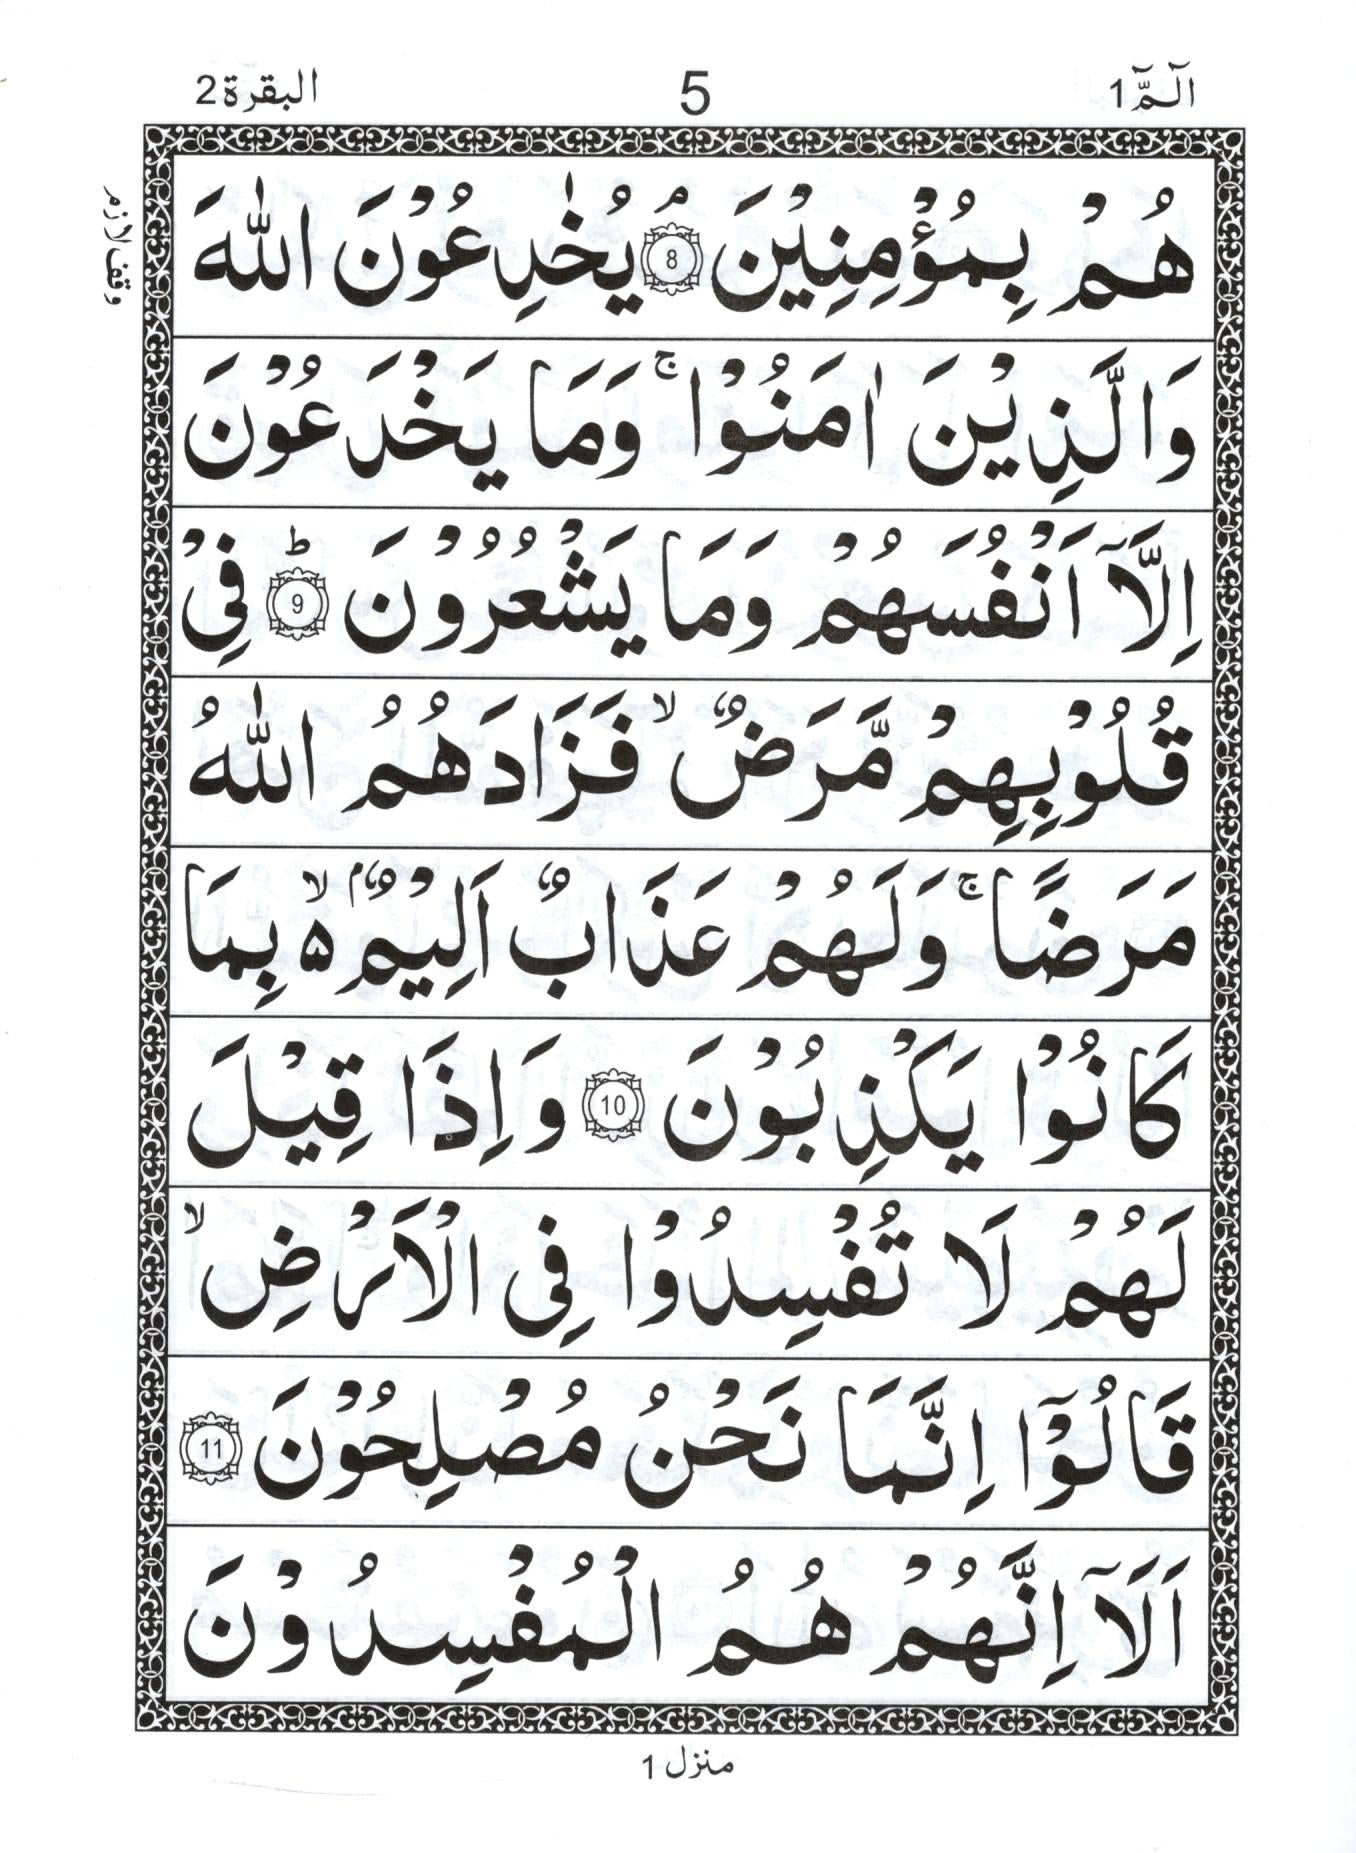 الٓمّٓ 1 5 البقرة 2
هُمْ بِمُؤْمِنِيْنَ ۘ 8 يُخٰدِعُوْنَ اللّٰهَ
وقف لازم
وَالَّذِيْنَ اٰمَنُوْا ۚ وَمَا يَخْدَعُوْنَ
اِلَّآ اَنْفُسَهُمْ وَمَا يَشْعُرُوْنَ ؕ 9 فِيْ
قُلُوْبِهِمْ مَّرَضٌ ۙ فَزَادَهُمُ اللّٰهُ
مَرَضًا ۚ وَلَهُمْ عَذَابٌ اَلِيْمٌۢ ۵ۙ بِمَا
كَانُوْا يَكْذِبُوْنَ 10 وَاِذَا قِيْلَ
لَهُمْ لَا تُفْسِدُوْا فِى الْاَرْضِ ۙ
قَالُوْٓا اِنَّمَا نَحْنُ مُصْلِحُوْنَ 11
اَلَآ اِنَّهُمْ هُمُ الْمُفْسِدُوْنَ
منزل 1